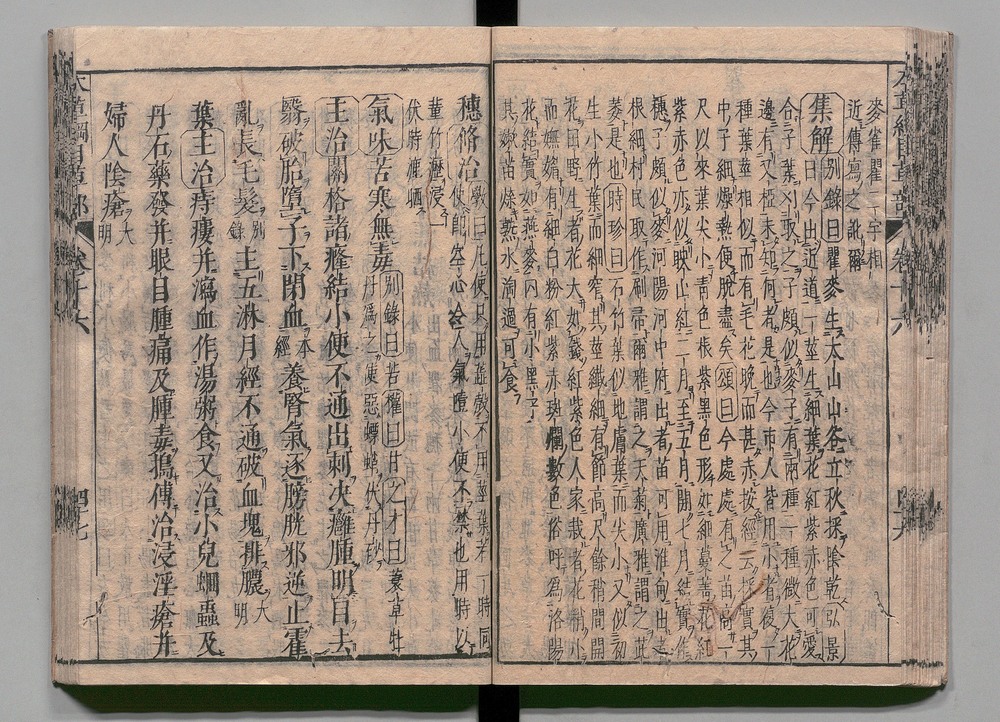 麥雀瞿二字相
近傳寫之訛爾
集解別錄曰瞿麥生太山山谷立秋採陰乾弘景
曰今出近道一莖生細葉花紅紫赤色可愛
合子葉刈取之子頗似麥子有兩種一種微大花
邊有叉椏未知何者是也今市人皆用小者復一
種葉莖相似而有毛花晚而甚赤按經云採實其
中子細燥熟便脫盡矣頌曰今處處有之苗高一
尺以來葉尖小青色根紫黑色形如細蔓菁花紅
紫赤色亦似映山紅二月至五月開七月結實作
穗子頗似麥河陽河中府出者苗可用淮甸出者
根細村民取作刷帚爾雅謂之大菊廣雅謂之茈
萎是也時珍曰石竹葉似地膚葉而尖小又似初
生小竹葉而細窄其莖纖細有節高尺餘稍間開
花田野生者花大如錢紅紫色人家栽者花稍小
而嫵媚有細白粉紅紫赤斑爛數色俗呼為洛陽
花結實如燕麥內有小黑子
其嫩苗煠熟水淘過可食
穗修治斅曰凡使只用蕊殼不用莖葉若一時同
使即空心令人氣噎小便不禁也用時以
堇竹瀝浸一
伏時漉晒
氣味苦寒無毒別錄曰苦權曰甘之才曰蘘草牡
丹為之使惡螵蛸伏丹砂
主治關格諸癃結小便不通出刺決癰腫明目去
翳破胎墮子下閉血本經養腎氣逐膀胱邪逆止霍
亂長毛髮別錄主五淋月經不通破血塊排膿大明
葉主治痔瘻并瀉血作湯粥食又治小兒蚘蟲及
丹石藥發并眼目腫痛及腫毒搗傅治浸淫瘡并
婦人陰瘡大明